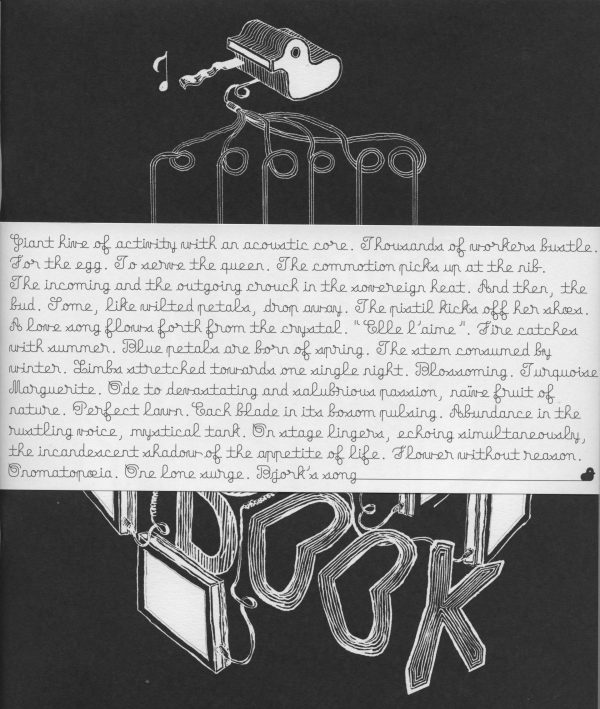 Giant hive of activity with an acoustic core. Thousands of workers bustle.
For the egg. To serve the queen. The commotion picks up at the nib.
The incoming and the outgoing crouch in the sovereign heat. And then, the
bud. Some, like wilted petals, drop away. The pistil kicks off her shoes.
A love song flows forth from the crystal. "Elle l'aime". Fire catches
with summer. Blue petals are born of spring. The stem consumed by
winter. Limbs stretched towards one single night. Blossoming. Turquoise
Marguerite. Ode to devastating and salubrious passion, naïve fruit of
nature. Perfect lawn. Each blade in its bosom pulsing. Abundance in the
rustling voice, mystical tank. On stage lingers, echoing simultaneously,
the incandescent shadow of the appetite of life. Flower without reason.
Onomatopœia. One lone surge. Bjork's song
K